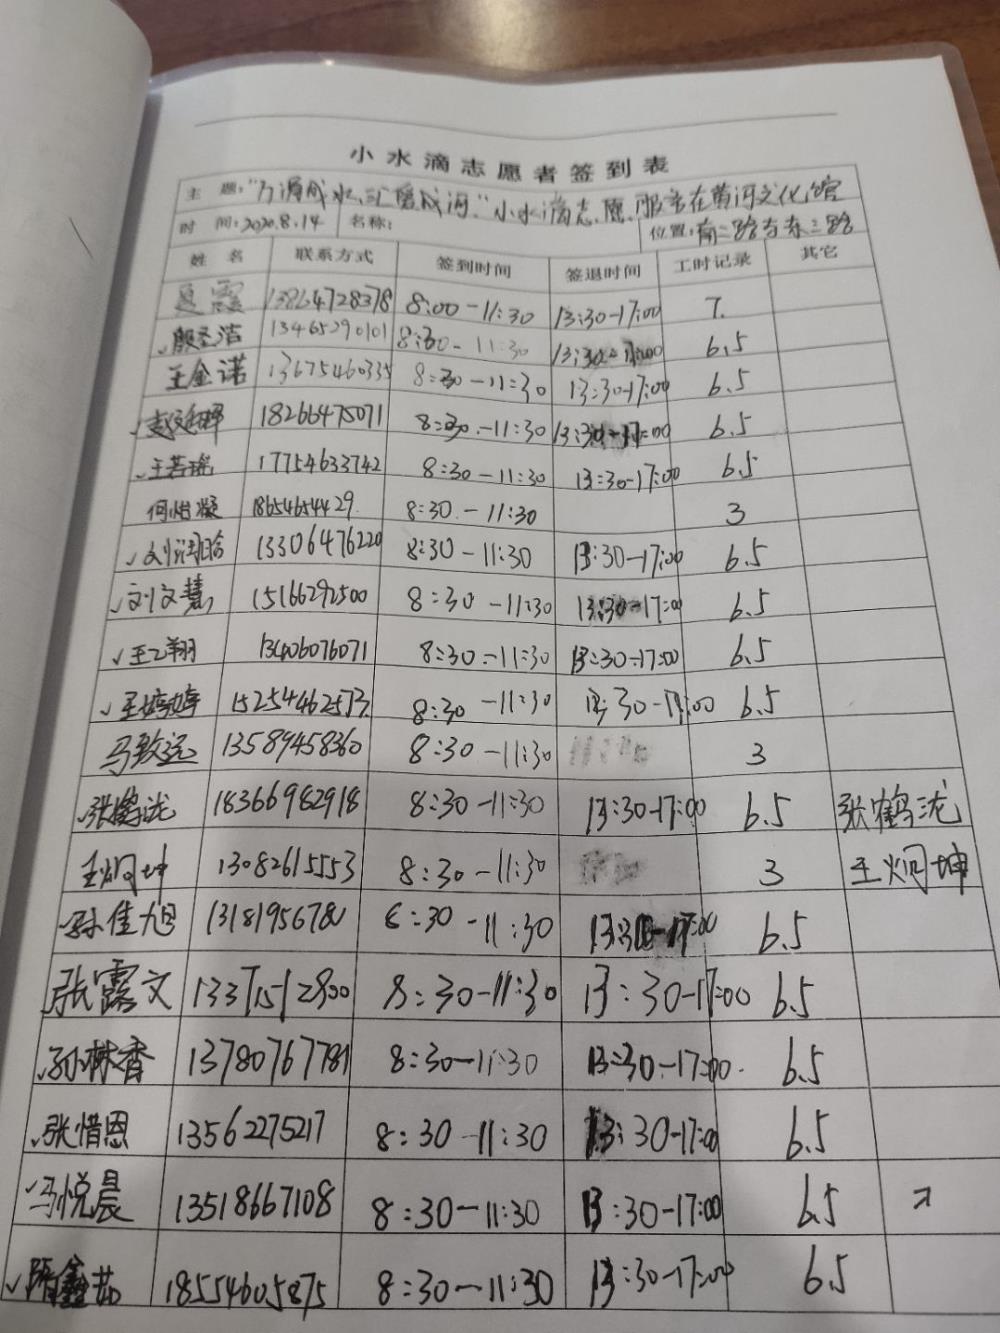 小水滴志愿者签到表
主 题："万滴成水,汇爱成河."小水滴志愿服务在黄河文化馆
时 间:2020.8.14 名称: 位置:南二路与东三路
姓 名 联系方式 签到时间 签退时间 工时记录 其它
夏霞 13864728378 8:00-11:30 13:30-17:00 7.
殷圣洁 13465290101 8:30-11:30 13:30-17:00 6.5
王金诺 13675460335 8:30-11:30 13:30-17:00 6.5
18266475071 8:30.-11:30 13:30-17:00 6.5
王若瑶 17754633742 8:30-11:30 13:30-17:00 6.5
何怡凝 18654654429 8:30.-11:30 3
刘润晗 13306476220 8:30-11:30 13:30-17:00 6.5
刘文慧 15166292500 8:30-11:30 13:30-17:00 6.5
王乙翔 13406076071 8:30-11:30 13:30-17:00 6.5
王婷婷 15254462573 8:30-11:30 13:30-17:00 6.5
马致远 13589458360 8:30-11:30 3
张鹤泷 18366982918 8:30-11:30 13:30-17:00 6.5 张鹤泷
王炯坤 13082615553 8:30-11:30 3 王炯坤
孙佳旭 1318195678 8:30-11:30 13:30-17:00 6.5
张露文 13371512800 8:30-11:30 13:30-17:00 6.5
孙林香 13780767781 8:30-11:30 13:30-17:00. 6.5
张惜恩 13562275217 8:30-11:30 13:30-17:00 6.5
马悦晨 13518667108 8:30-11:30 13:30-17:00 6.5
隋鑫茹 18554605875 8:30-11:30 13:30-17:00 6.5